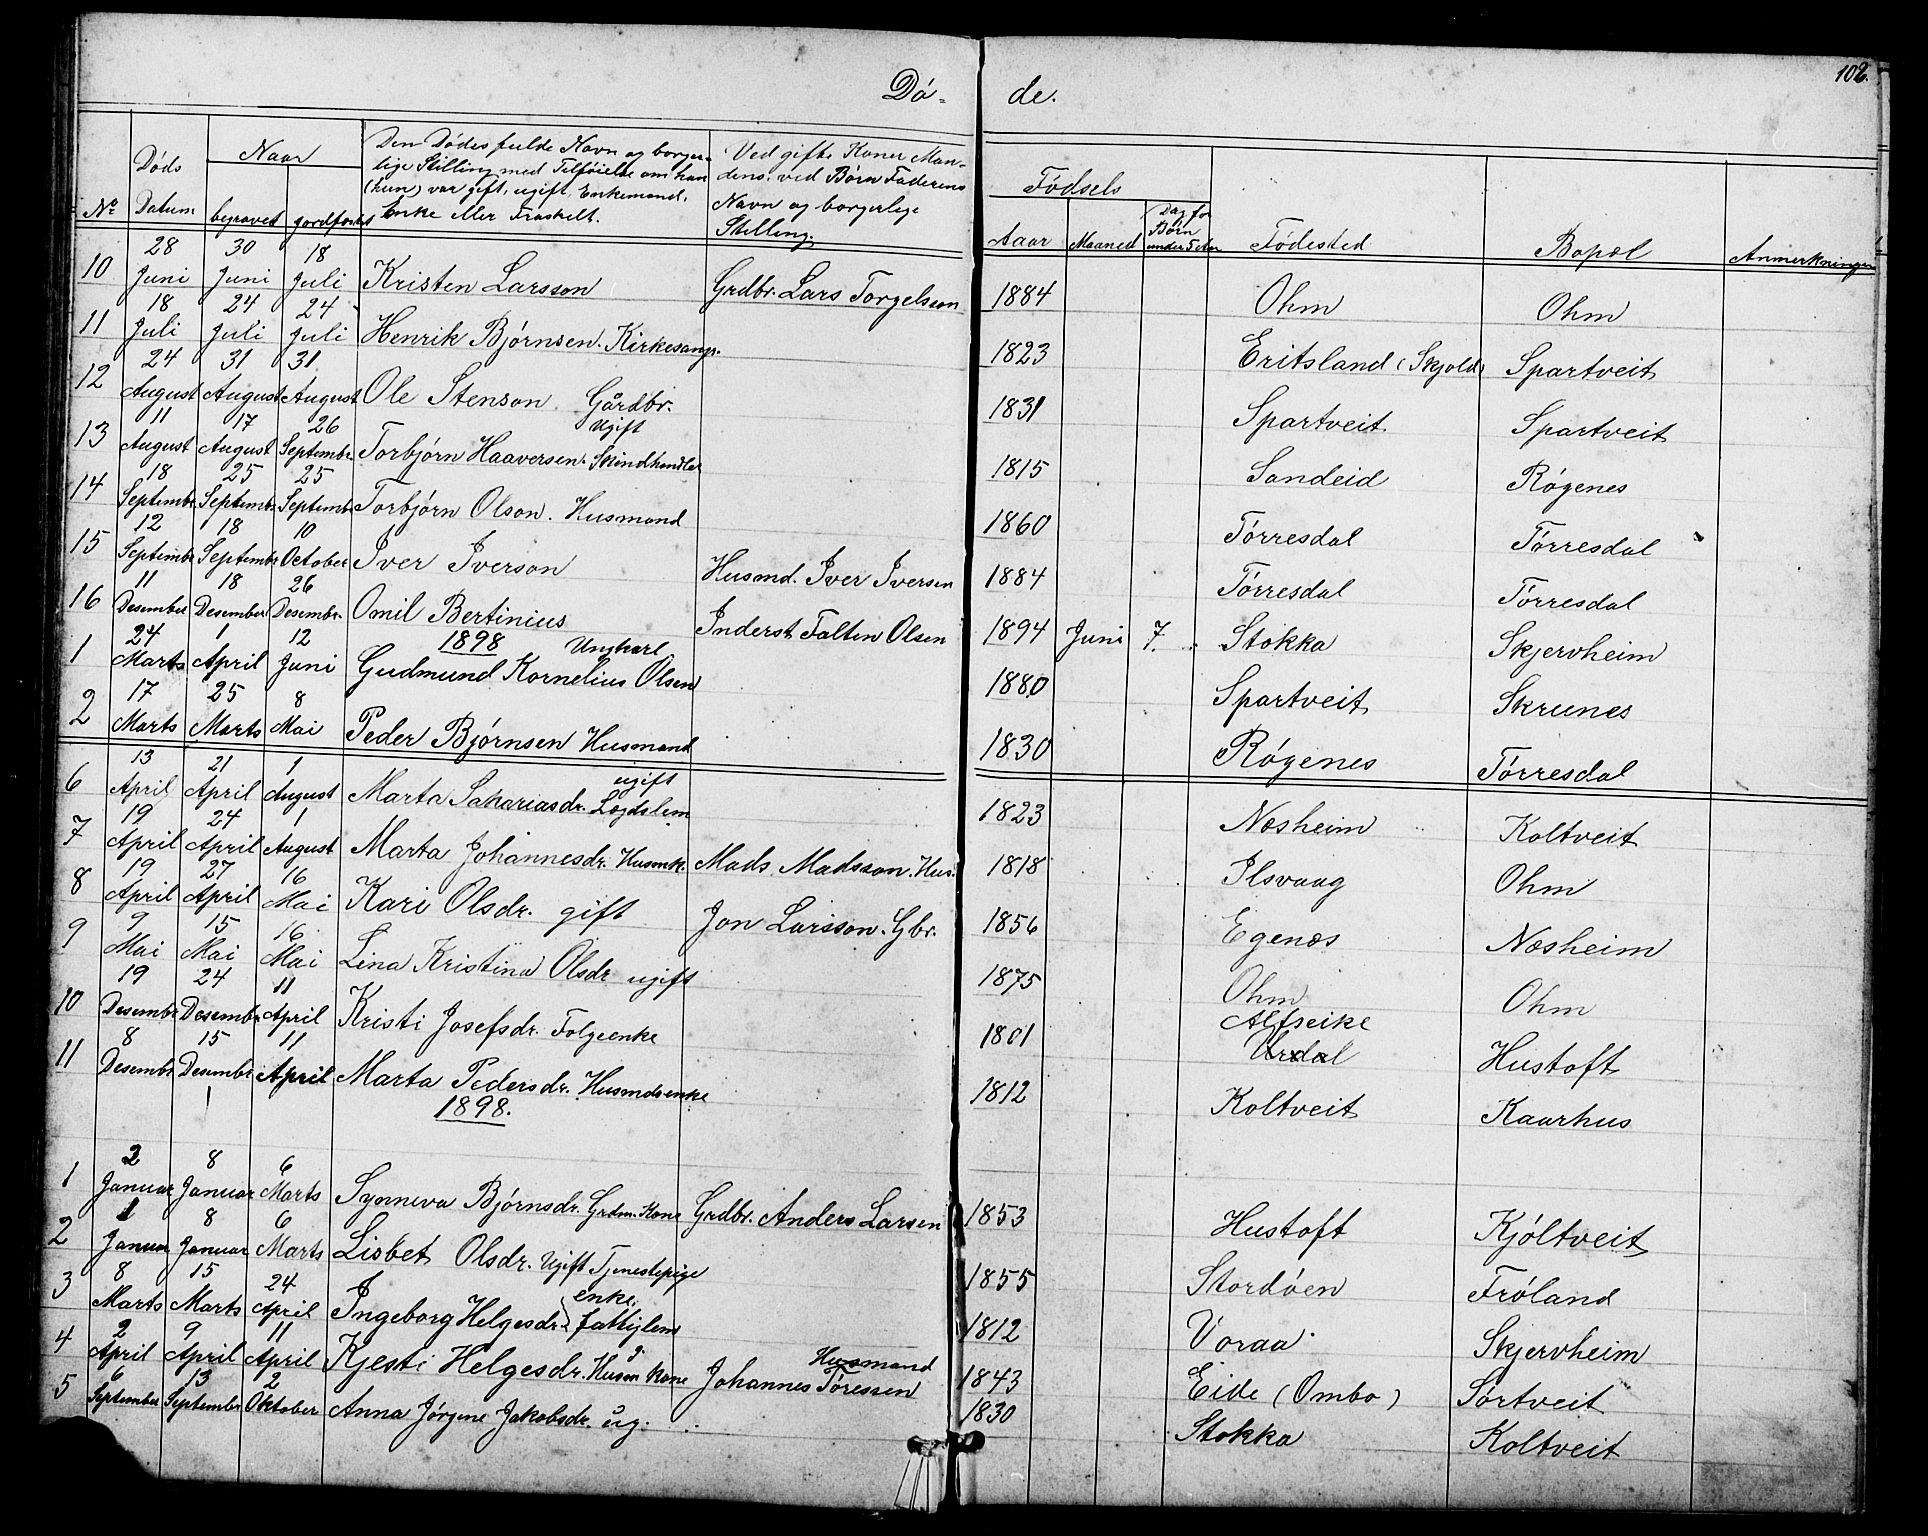 102.
Dö- de.
No Døds Datum Naar begravet jordfæstet Den Dødes fulde Navn og borger- Ved gifte Koner Man- Fødsels Aar Maaned Dag for Børn under 5 Aar Fødested Bopæl Anmerkninger
lige Stilling med Tilføielse om han dens, ved Børn Faderens
(hun) var gift, ugift, Enkemand, Navn og borgerlige
Enke eller Fraskilt. Stilling.
10 28 Juni 30 Juni 18 Juli Kristen Larsson Grdbr. Lars Torgelsson 1884 Ohm Ohm
11 18 Juli 24 Juli 24 Juli Henrik Bjørnsen. Kirkesangr. 1823 Eritsland (Skjold) Spartveit
12 24 August 31 August 31 August Ole Stenson Gårdbr. 1831 Spartveit. Spartveit
13 11 August 17 August 26 Septembr. Torbjørn Haaversen. Ugift Skindhandler 1815 Sandeid Røgenes
14 18 Septembr 25 Septembr. 25 Septembr Torbjørn Olson. Husmand 1860 Tørresdal Tørresdal
15 12 Septembr 18 Septembr 10 October Iver Iverson Husmd. Iver Iversen 1884 Tørresdal Tørresdal
16 11 Desember 18 Desember 26 Desembr. Omil Bertinius Inderst Falten Olsen 1894 Juni 7. Stokka Skjervheim
1898
1 24 Marts 1 April 12 Juni Gudmund Kornelius Olsen Ungkarl 1880 Spartveit Skrunes
2 17 Marts 25 Marts 8 Mai Peder Bjørnsen Husmand 1830 Røgenes Tørresdal
6 13 April 21 April 1 August Marta Sakariasdr. ugift Lægdslem 1823 Næsheim Koltveit
7 19 April 24 April 1 August Marta Johannesdr. Husmk. Mads Madsson. Hus. 1818 Ilsvaag Ohm
8 19 April 27 April 16 Mai Kari Olsdr. gift Jon Larsson. Gbr. 1856 Egenæs Næsheim
9 9 Mai 15 Mai 16 Mai Lina Kristina Olsdr ugift 1875 Ohm Ohm
10 19 Desembr 24 Desembr. 11 April Kristi Josefsdr. Folgeenke 1801 Alfseike Urdal Hustoft
11 8 Desembr 15 Desembr 11 April Marta Pedersdr. Husmdsenke 1812 Koltveit Kaarhus
1898.
1 2 Januar 8 Januar 6 Marts Synneva Bjørnsdr. Grdm. Kone Grdbr. Anders Larsen 1853 Hustoft Kjøltveit
2 1 Januar 8 Januar 6 Marts Lisbet Olsdr. Ugift Tjenestepige 1855 Stordøen Frøland
3 8 Marts 15 Marts 24 April Ingeborg Helgesdr. enke. fattiglem 1812 Voraa Skjervheim
4 2 April 9 April 11 April Kjesti Helgesdr. Husm kone Johannes Tøressen Husmand 1843 Eide (Ombo) Sørtveit
5 6 September 13 Septembr 2 Oktober Anna Jørgine Jakobsdr. ug. 1830 Stokka Koltveit